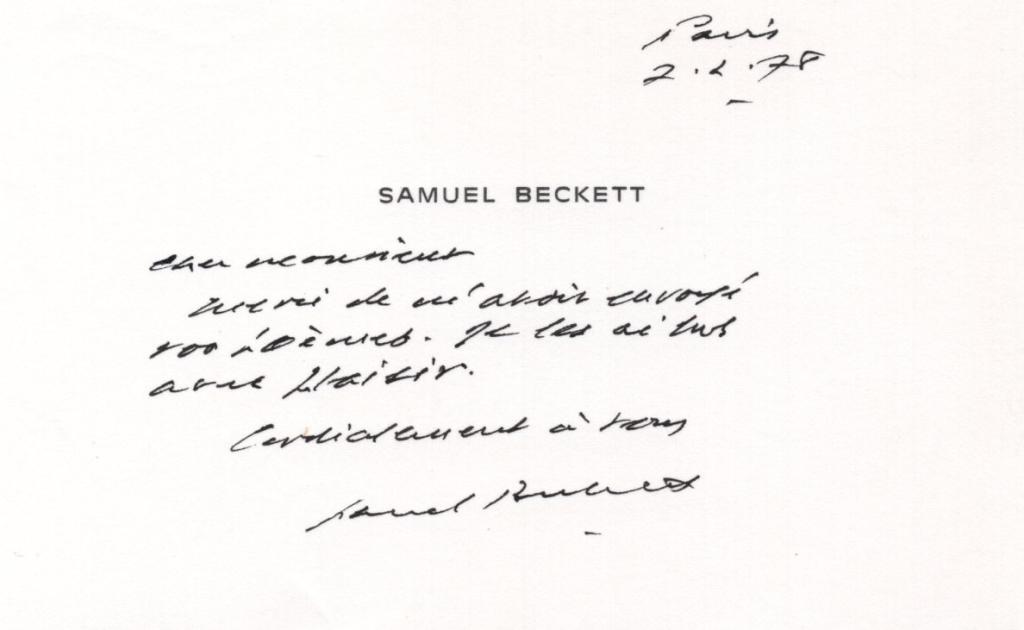 Paris
2.2.78
SAMUEL BECKETT
Cher monsieur
Merci de m'avoir envoyé
vos poèmes. Je les ai lus
avec plaisir.
Cordialement à vous
Samuel Beckett